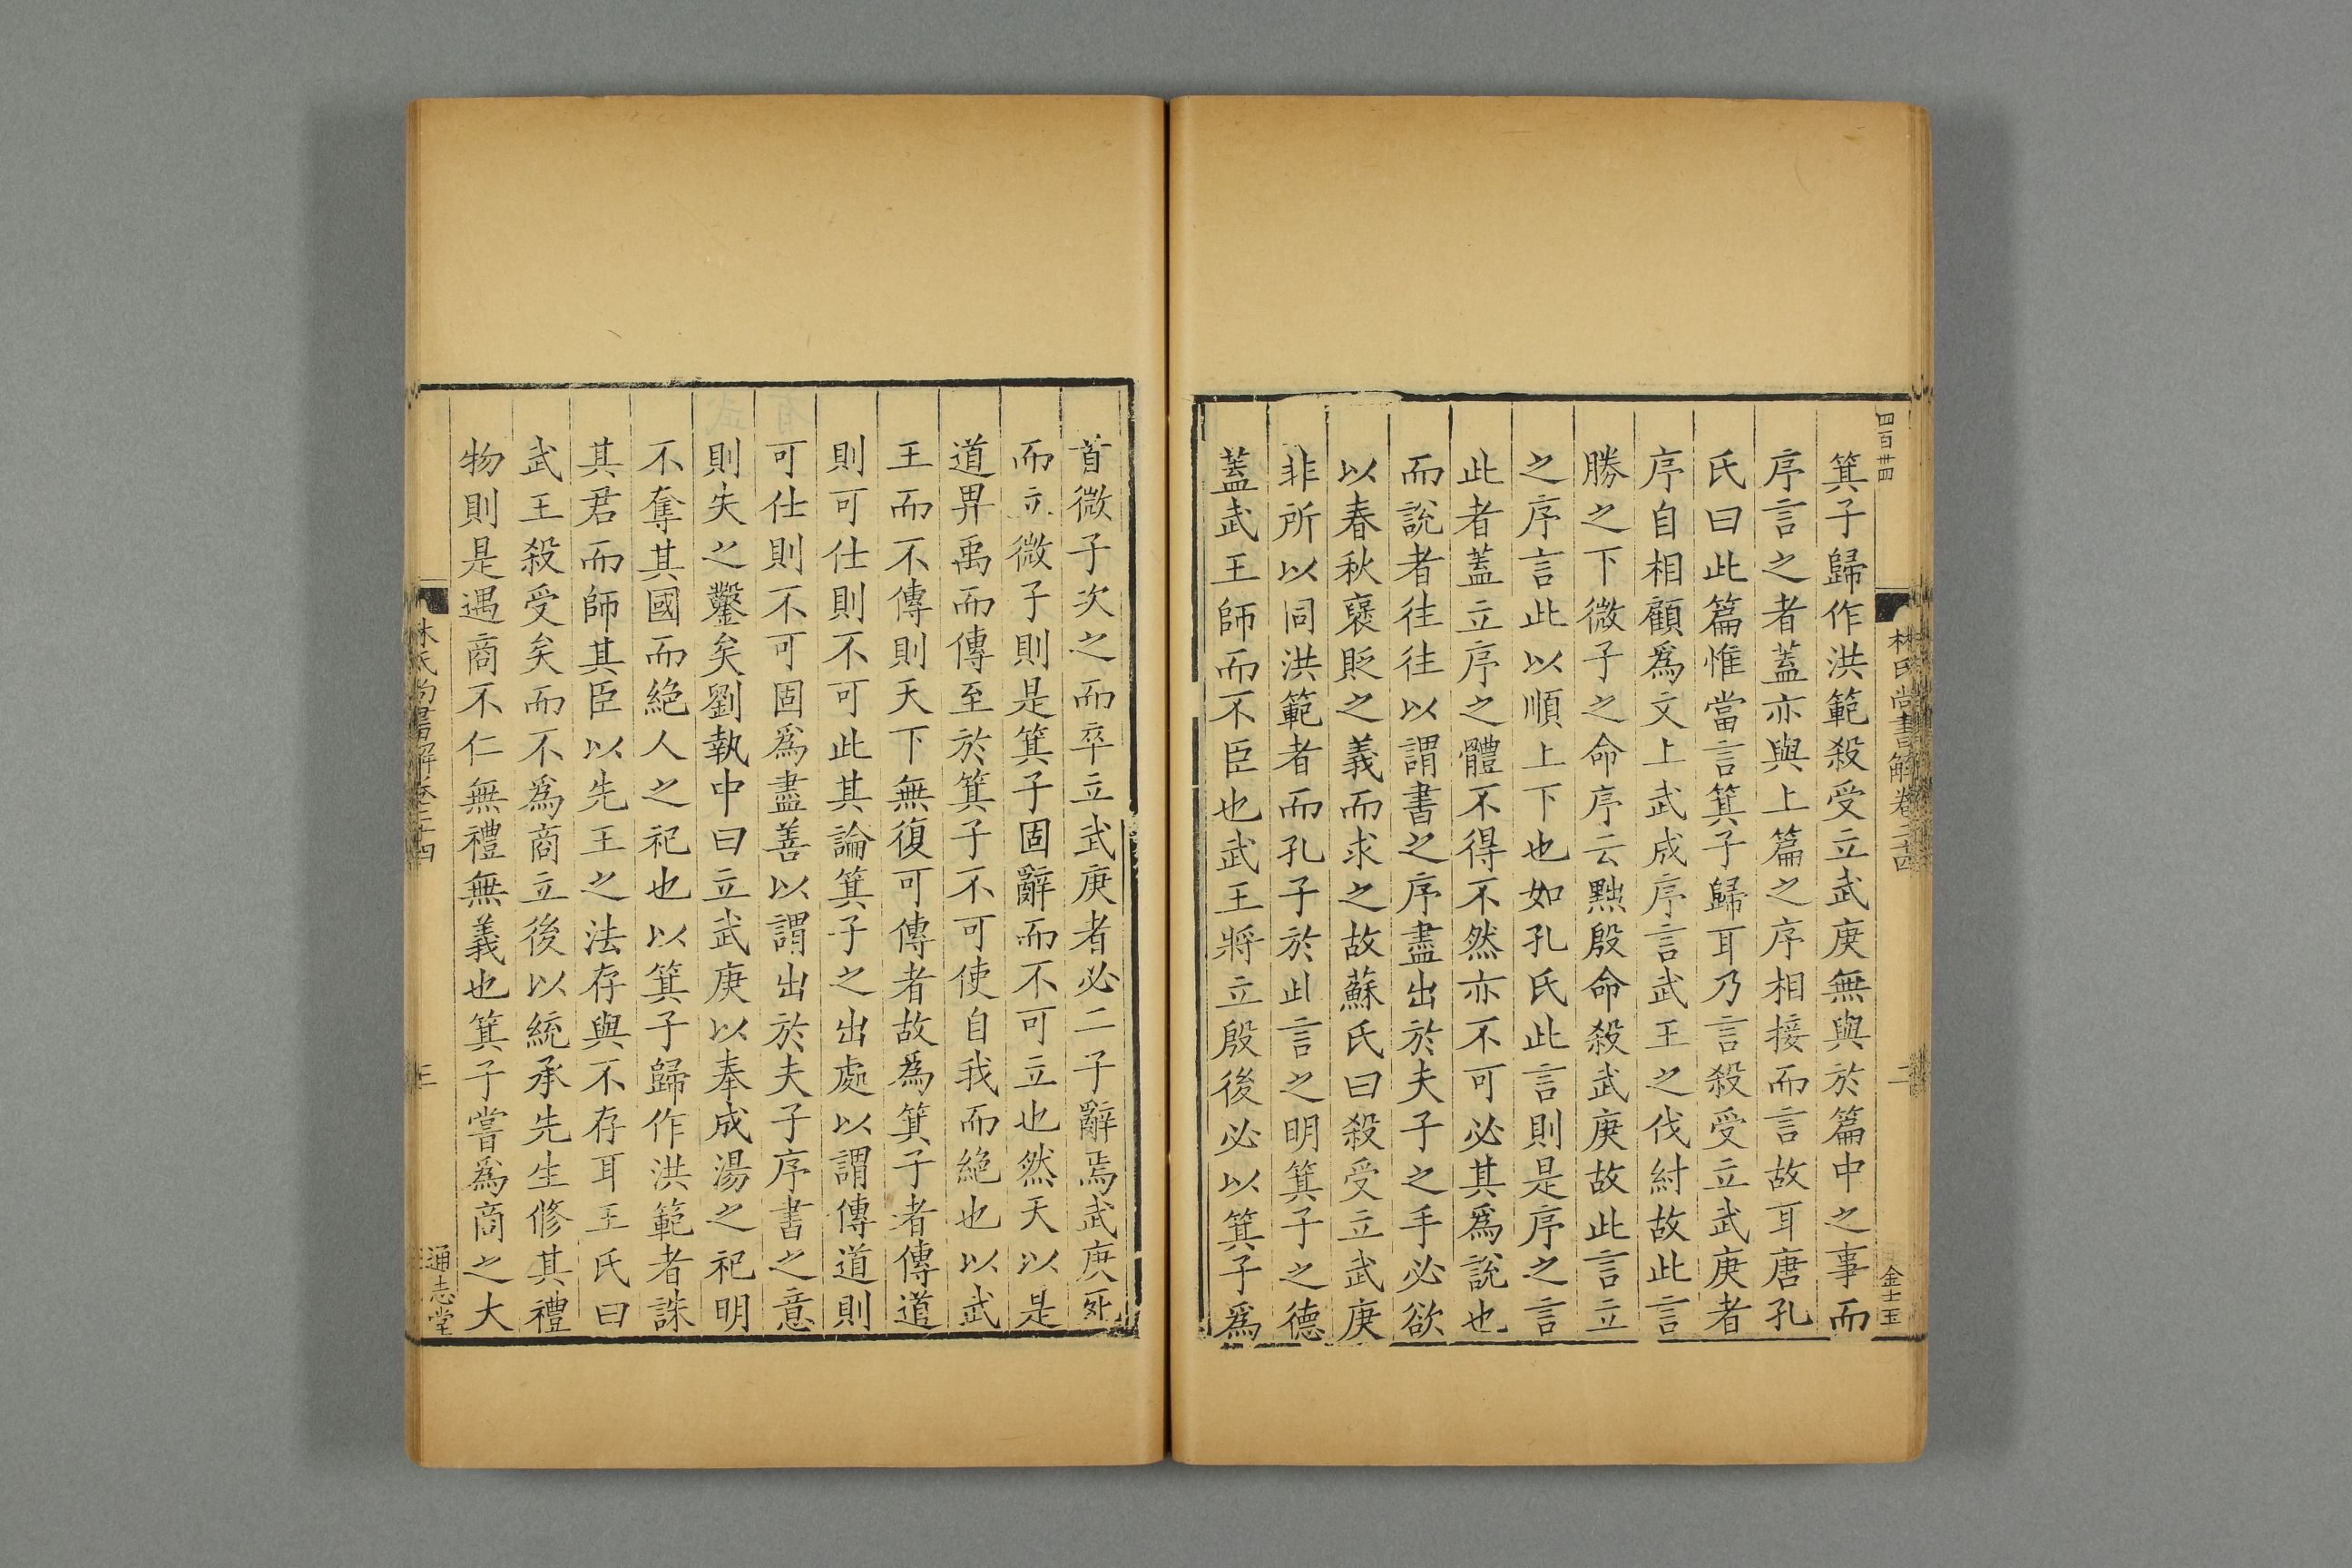 四百卄四
林氏尚書解卷二十四
二
金士玉
箕子歸作洪範殺受立武庚無與於篇中之事而
序言之者蓋亦與上篇之序相接而言故耳唐孔
氏曰此篇惟當言箕子歸耳乃言殺受立武庚者
序自相顧爲文上武成序言武王之伐紂故此言
勝之下微子之命序云黜殷命殺武庚故此言立
之序言此以順上下也如孔氏此言則是序之言
此者蓋立序之體不得不然亦不可必其爲說也
而說者往往以謂書之序盡出於夫子之手必欲
以春秋襃貶之義而求之故蘇氏曰殺受立武庚
非所以同洪範者而孔子於此言之明箕子之德
蓋武王師而不臣也武王將立殷後必以箕子爲
首微子次之而卒立武庚者必二子辭焉武庚死
而立微子則是箕子固辭而不可立也然天以是
道畀禹而傳至於箕子不可使自我而絕也以武
王而不傳則天下無復可傳者故爲箕子者傳道
則可仕則不可此其論箕子之出處以謂傳道則
可仕則不可固爲盡善以謂出於夫子序書之意
則失之鑿矣劉執中曰立武庚以奉成湯之祀明
不奪其國而絕人之祀也以箕子歸作洪範者誅
其君而師其臣以先王之法存與不存耳王氏曰
武王殺受矣而不爲商立後以統承先生修其禮
物則是遇商不仁無禮無義也箕子嘗爲商之大
林氏尚書解卷二十四
三
通志堂